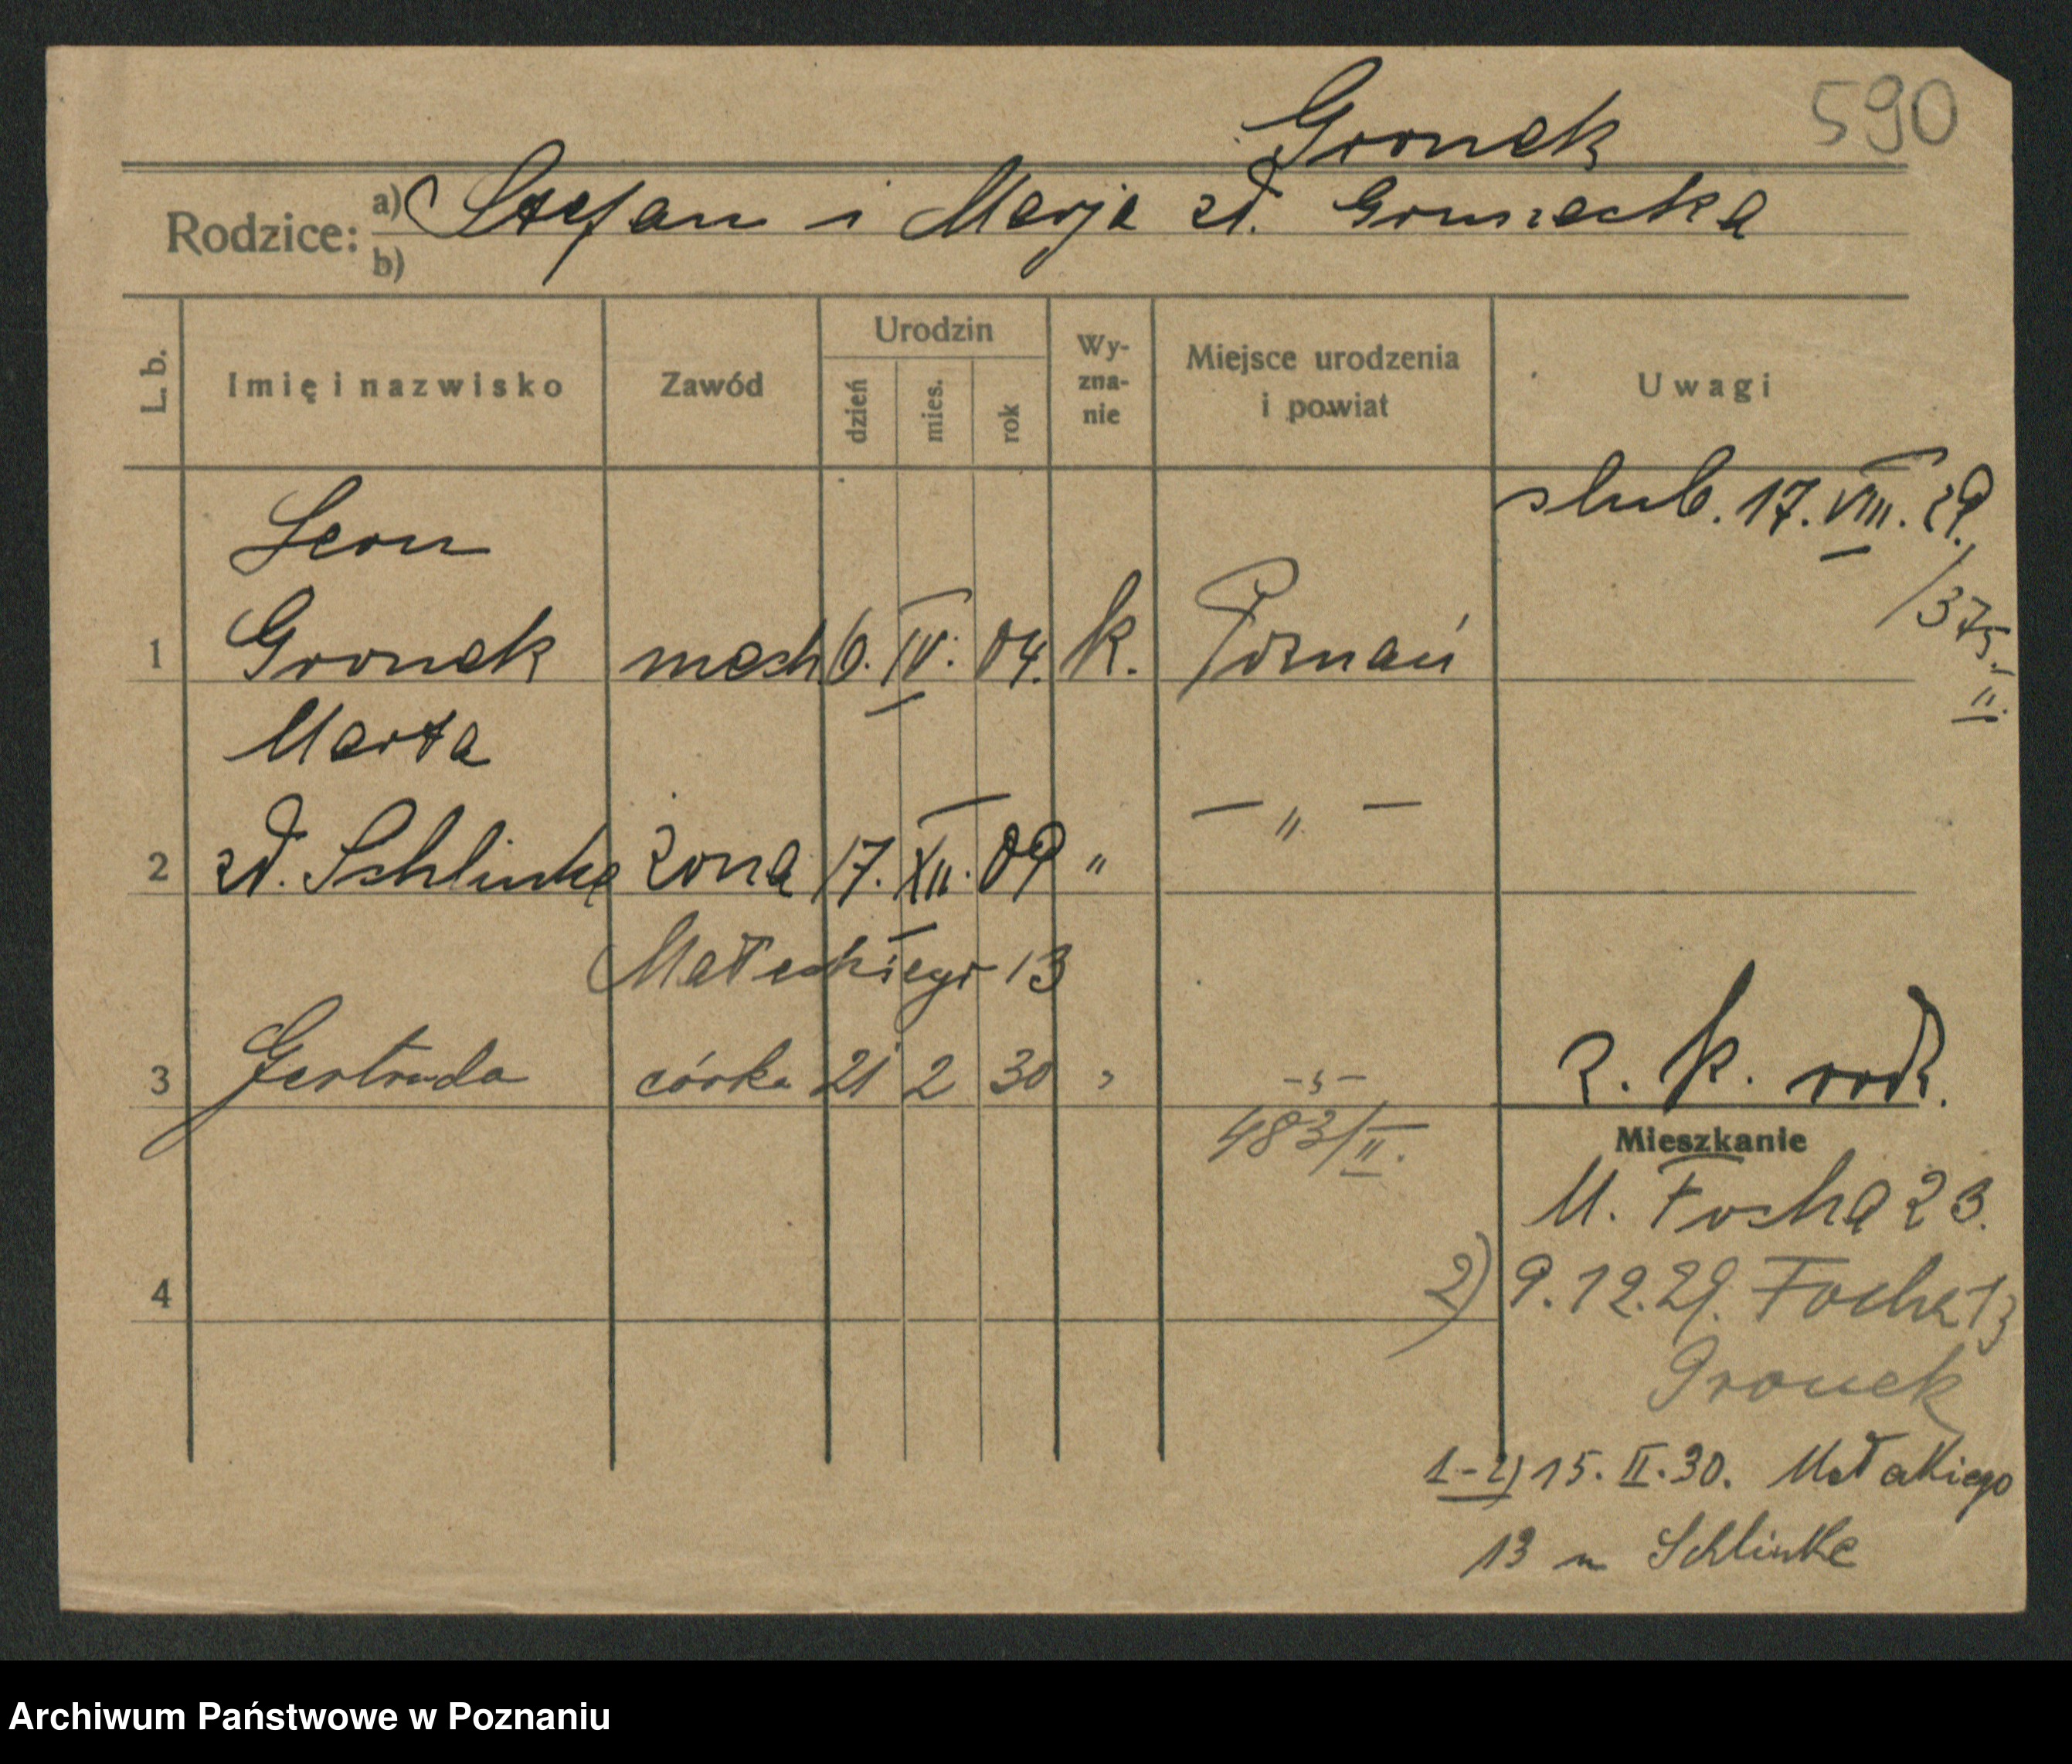 590
Gronek
Rodzice: a) Stefan i Marja zd.
b)
L. b. Imię i nazwisko Zawód Urodzin dzień mies. rok Wy-zna-nie Miejsce urodzenia i powiat Uwagi
ślub. 17. VIII. 29.
/375. II.
Leon
1 Gronek mech. 6. IV. 04. k. Poznań
Marta
2 zd. Schlinke żona 17. XII. 09 " — " —
Małeckiego 13
3 Gertruda córka 21 2 30 " - " - z. k. rodz.
483/II.
Mieszkanie
M. Focha 23.
4
2) 9.12.29. Focha 13
Gronek
1-2) 15. II. 30. Małeckiego
13 u Schlinke
Archiwum Państwowe w Poznaniu